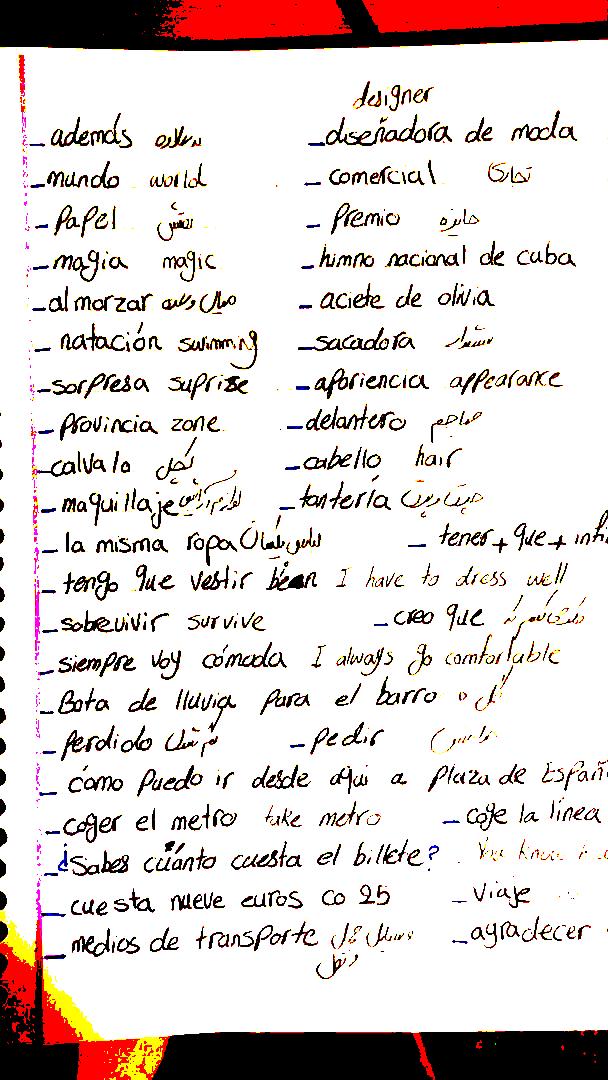 designer
_ además بعلاوه _ diseñadora de moda
_ mundo world _ comercial تجاری
_ Papel نقش _ Premio جایزه
_ magia magic _ himno nacional de cuba
_ almorzar _ aciete de olivia
_ natación swimming _ sacadora
_ sorpresa suprise _ apariencia appearance
_ Provincia zone _ delantero مهاجم
_ calvalo _ cabello hair
_ maquillaje لوازم آرایش _ tantería چرت و پرت
_ la misma ropa _ tener + que + infi
_ tengo que vestir bean I have to dress well
_ sobrevivir survive _ creo que
_ siempre voy cómoda I always go comfortable
_ Bota de lluvia para el barro گل
_ Perdido گم شدن _ Pedir
_ cómo Puedo ir desde aqui a Plaza de Españ
_ coger el metro take metro _ coge la línea
_ ¿Sabes cuánto cuesta el billete? You know
_ cuesta nueve euros co 25 _ viaje
_ medios de transporte وسایل حمل _ agradecer
ونقل